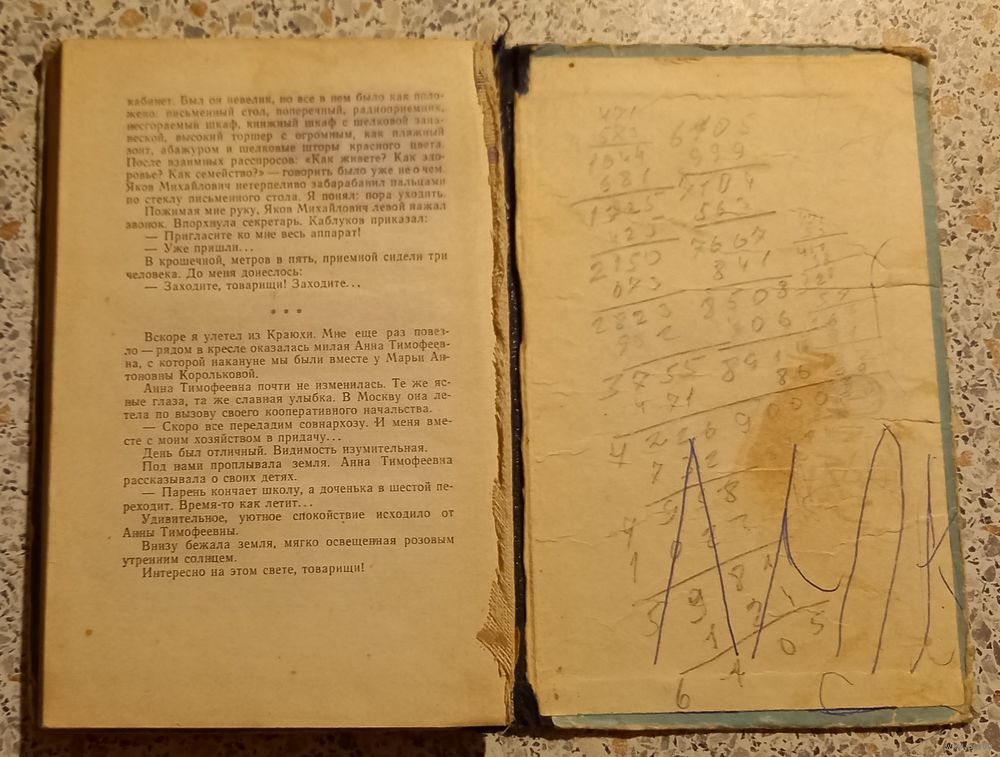 кабинет. Был он невелик, но все в нем было как поло-
жено: письменный стол, поперечный, радиоприемник,
несгораемый шкаф, книжный шкаф с шелковой зана-
веской, высокий торшер с огромным, как пляжный
зонт, абажуром и шелковые шторы красного цвета.
После взаимных расспросов: «Как живете? Как здо-
ровье? Как семейство?» — говорить было уже не о чем.
Яков Михайлович нетерпеливо забарабанил пальцами
по стеклу письменного стола. Я понял: пора уходить.
Пожимая мне руку, Яков Михайлович левой нажал
звонок. Впорхнула секретарь. Каблуков приказал:
— Пригласите ко мне весь аппарат!
— Уже пришли...
В крошечной, метров в пять, приемной сидели три
человека. До меня донеслось:
— Заходите, товарищи! Заходите...
* * *
Вскоре я улетел из Краюхи. Мне еще раз повез-
ло — рядом в кресле оказалась милая Анна Тимофеев-
на, с которой накануне мы были вместе у Марьи Ан-
тоновны Корольковой.
Анна Тимофеевна почти не изменилась. Те же яс-
ные глаза, та же славная улыбка. В Москву она ле-
тела по вызову своего кооперативного начальства.
— Скоро все передадим совнархозу. И меня вме-
сте с моим хозяйством в придачу...
День был отличный. Видимость изумительная.
Под нами проплывала земля. Анна Тимофеевна
рассказывала о своих детях.
— Парень кончает школу, а доченька в шестой пе-
реходит. Время-то как летит...
Удивительное, уютное спокойствие исходило от
Анны Тимофеевны.
Внизу бежала земля, мягко освещенная розовым
утренним солнцем.
Интересно на этом свете, товарищи!
471
1544
999
681
7104
1325
563
125
7667
2150
841
673
8508
2823
406
3755
471
4226